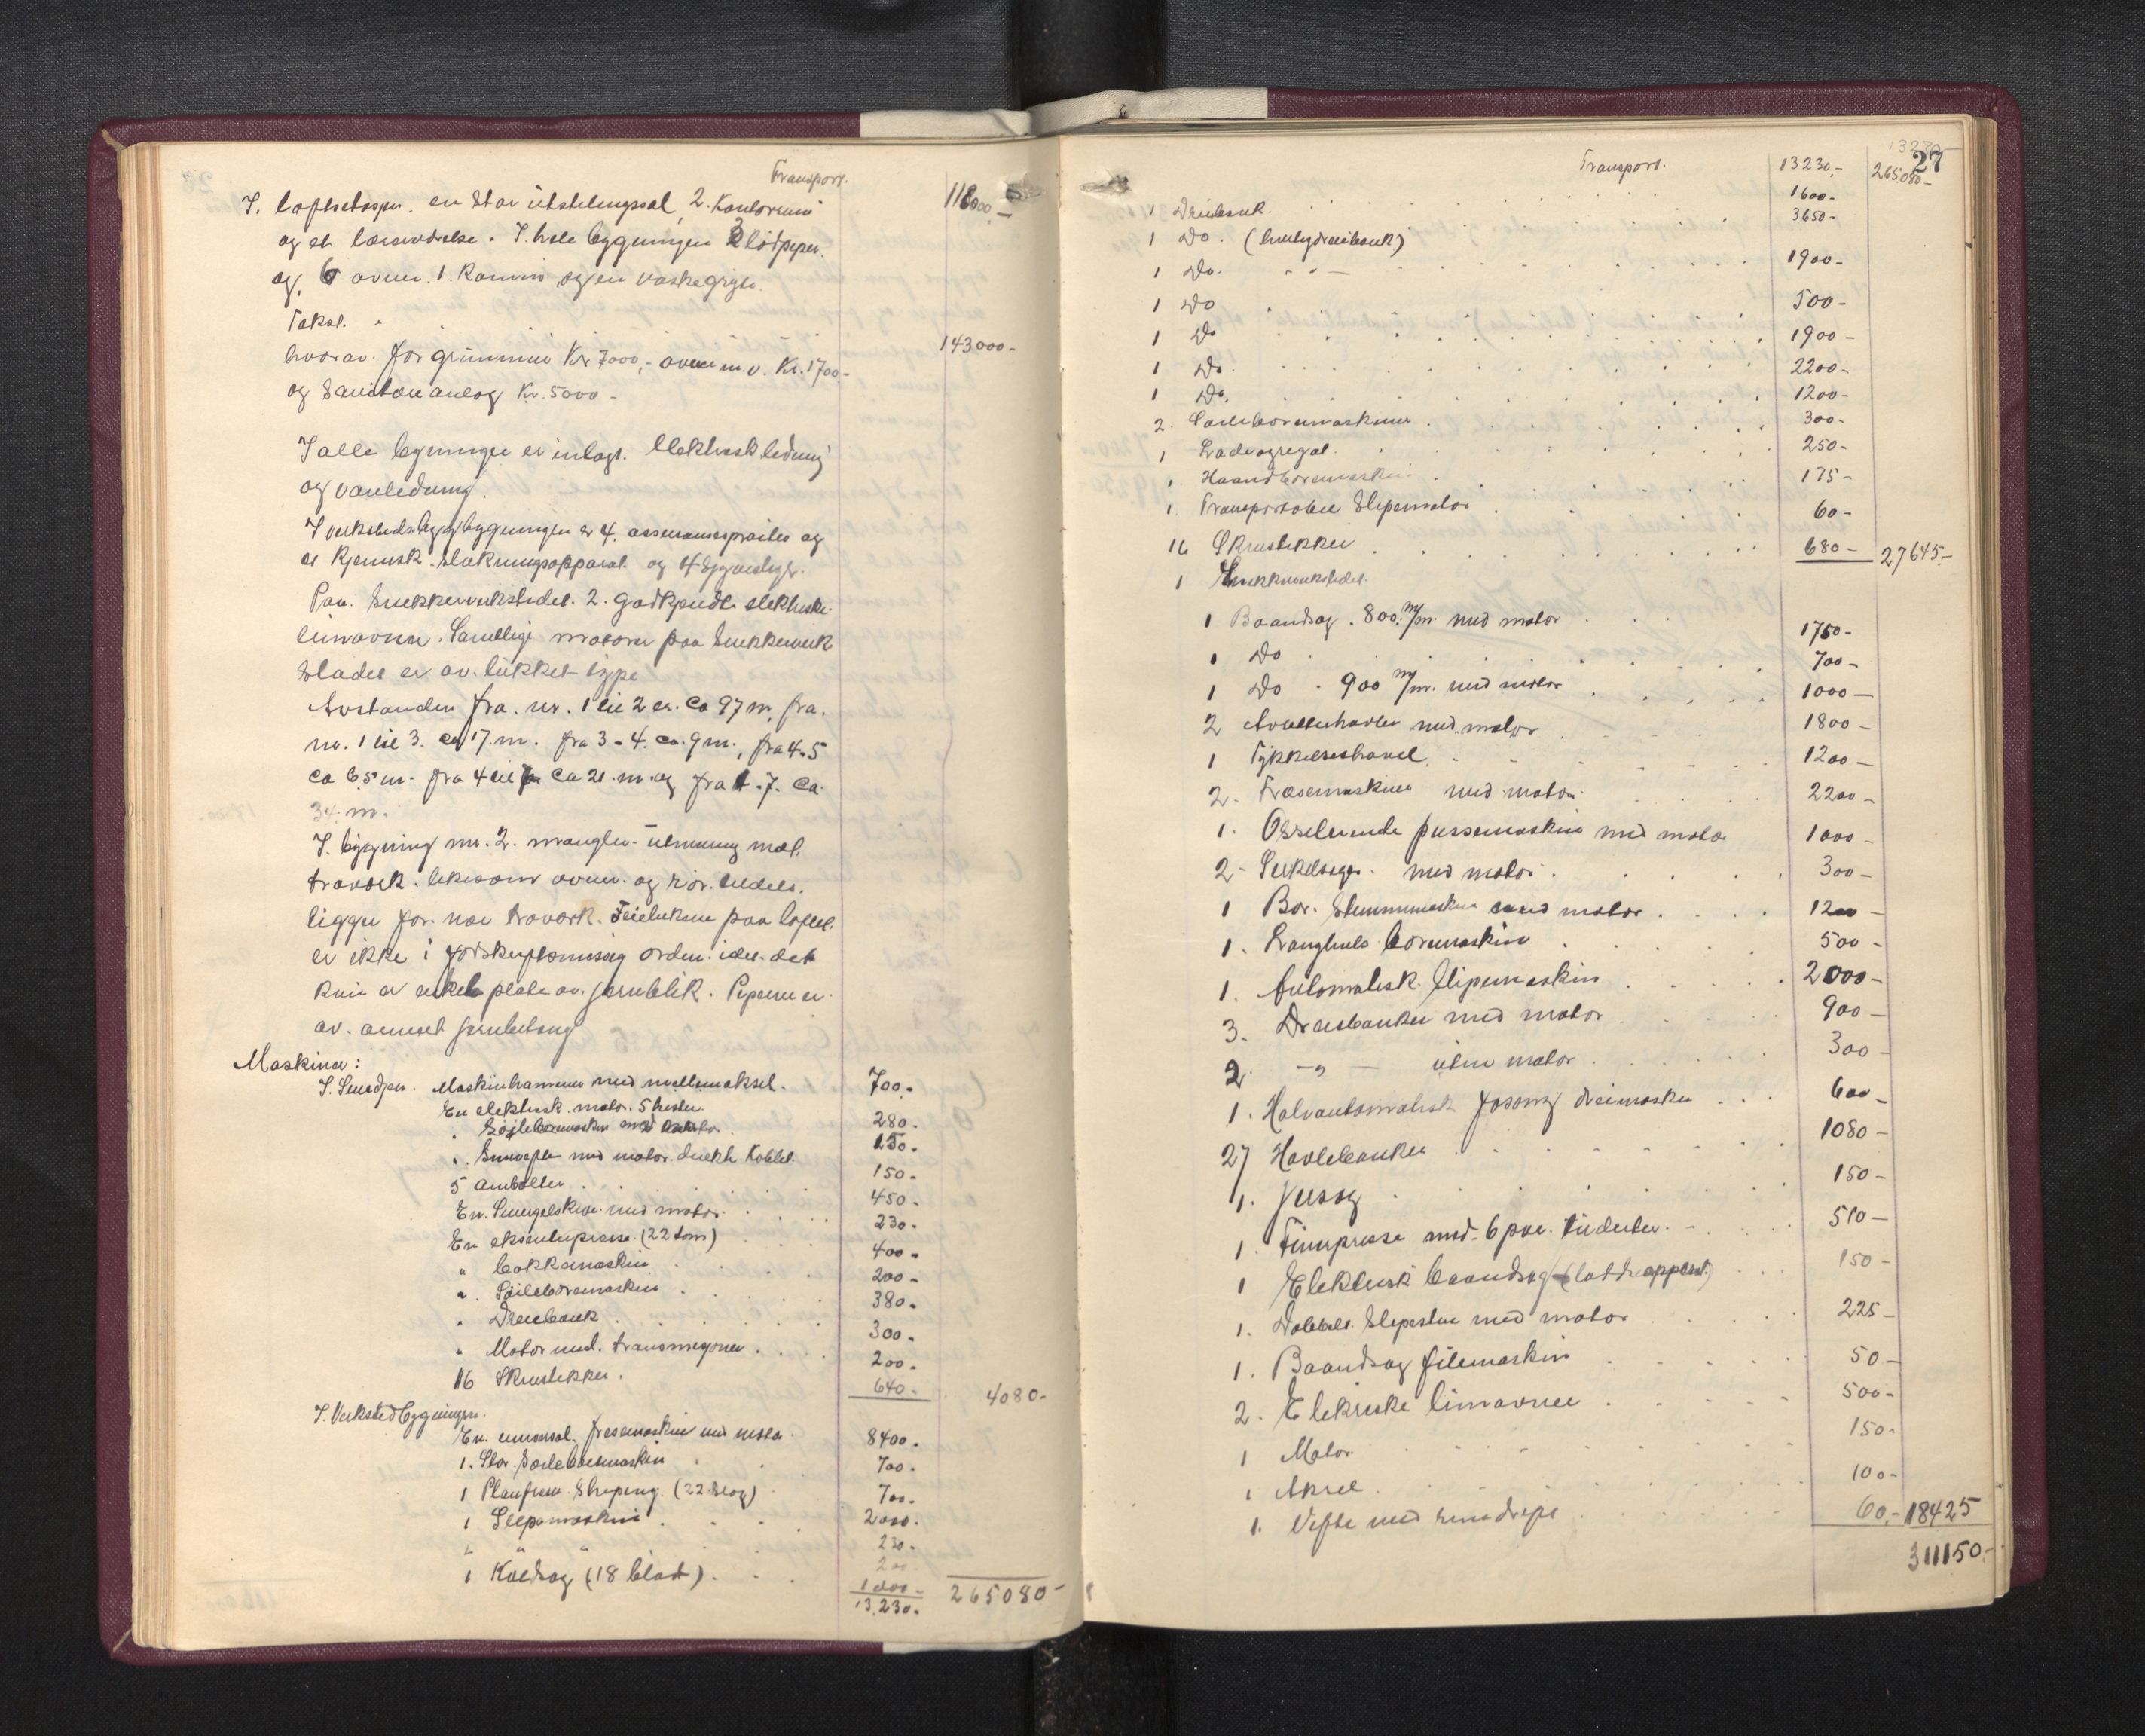 Transport.
118000.—
I. loftsetasjen. en stor utstelingssal, 2. Kontorrum
og et læreværelse. I hele bygningen 2 lødpiper.
og 6 ovner. 1. Kamin og en vaskegryte.
Takst. 143000-
hvorav. for grunnmur Kr 7000,- ovner m.v. Kr. 1700-
og Sanitæranlæg Kr. 5000-
I alle bygninger er inlagt. Elektrisk ledning
og vanledning.
I verkstedsbygbygningen er 4. assuransesprøiter og
et kjemisk slukningsapparat og 4
Paa. Snekkerverkstedet. 2. godkjendte elektriske
limovner. Samtlige motorer paa Snekkerverk
stedet er av lukket type
Avstanden fra. nr. 1 til 2 er. Ca 97 m, fra.
nr. 1 til 3. ca 17 m. fra 3-4. ca. 9 m., fra 4-5
ca 6,5 m. fra 4 til ca 21 m. og fra 1-7. Ca.
34. m.
I. bygning nr. 2. mangler utmuring mot.
træverk. likesom ovner. og rør. tildels.
ligger for. nær træverk. Feieluken paa loftet.
er ikke i forskriftsmessig orden. idet det
kun er enkel plate av. jernblikk. Piperne er.
av. armert jernbetong
Maskiner:
I. Smedjen. Maskinhammer med mellemaksel. 700.-
En elektrisk. motor. 5 hester. 280.-
" Søjleboremaskin med motor 150.-
" Smivifte med motor direkte koblet. 150-
5 Ambolter 450-
En. Smergelskive med motor 230-
En eksenterpresse (22 tonn) 400-
" bokkemaskin 200-
" Søileboremaskin 380-
" Dreiebenk 300-
" Motor med. transmisjoner 200.
16 Skrustikker. 640. 4080-
I. Verkstedbygningen.
En. universal. fresemaskin med motor 8400-
1. Stor. Søileboremaskin 700-
1 Planfres. Sheping (22" slag) 700-
1 Slipemaskin 2000-
" " " 230-
200
1 Kaldsag (18" blad) 1000-
13.230. 265080-
27
13230-
Transport. 13230,- 265,080-
1 Dreiebenk. 1600-
1 Do. (hurtigdreiebenk) 3650-
1 Do. - " - 1900-
1 Do 500-
1 Do 1900-
1 Do. 2200-
1 Do. 1200-
2. Søileboremaskiner 300-
1 Ladeagregat. 250-
1. Haandboremaskin 175-
1. Transportabel Slipemotor 60-
16 Skrustikker 680- 27645-
I Snekkerverkstedet.
1 Baandsag. 800 m/m. med motor 1750-
1 Do 700-
1 Do. 900 m/m. med motor 1000-
2 Avretterhøvler med motor 1800-
1 Tykkelseshøvel 1200-
2. Fræsemaskiner med motor 2200-
1. Osselerende pussemaskin med motor 1000-
2- Sirkelsager. med motor. 300-
1 Bor. Stemmemaskin med motor 1200-
1. Langhuls boremaskin 500-
1. Automatisk. Slipemaskin 2000-
3. Dreiebenker med motor 900-
2 - " - uten motor 300-
1. Halvautomatisk dreiemaskin 600-
27 Høvlebenker 1080-
1. 150-
1. Finerpresse med 6 par. 510-
1 Elektrisk baandsag 150-
1. Dobbelt. Slipesten med motor 225-
1. Baandsag filemaskin 50-
2. Elektriske limovner 500-
1 Motor 150-
1 Aksel 100-
1. Vifte med 60.- 18425
311150-